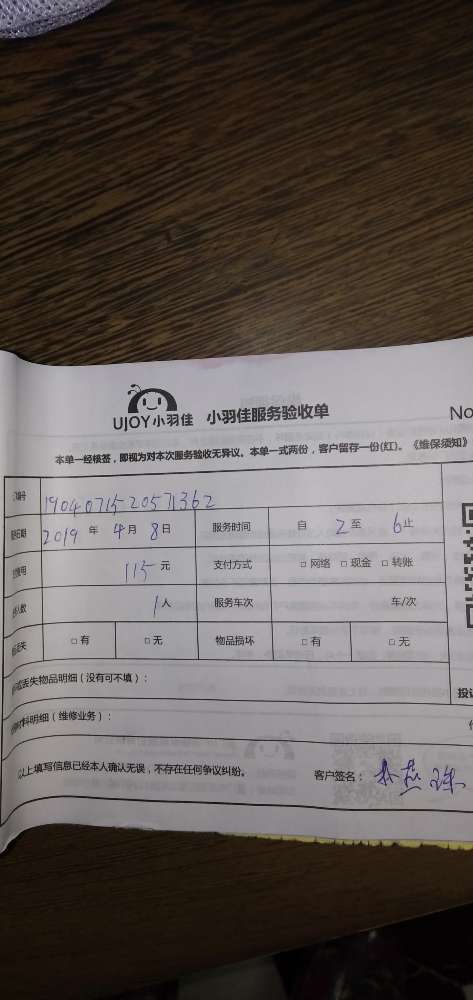 UJOY小羽佳 小羽佳服务验收单 No
本单一经核签，即视为对本次服务验收无异议。本单一式两份，客户留存一份(红)。《维保须知》
订单号 1904071520571362
2019 年 4 月 8 日 服务时间 自 2 至 6 止
115 元 支付方式 □ 网络 □ 现金 □ 转账
人数 1 人 服务车次 车/次
丢失 □ 有 □ 无 物品损坏 □ 有 □ 无
丢失物品明细（没有可不填）：
材料明细（维修业务）：
以上填写信息已经本人确认无误，不存在任何争议纠纷。 客户签名：
投诉